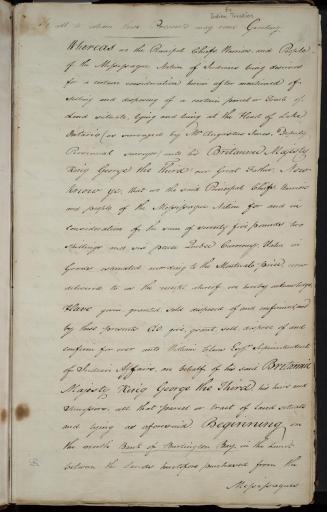 Indian Treaties
To all to whom these Presents may come Greeting
Whereas we the Principal Chiefs Warriors and People
of the Messissague Nation of Indians being desirous
for a certain consideration herein after mentioned of
selling and disposing of a certain parcel or Tract of
Land situate, lying and being at the Head of Lake
Ontario (as surveyed by Mr Augustus Jones Deputy
Provincial surveyor) unto his Britannic Majesty
King George the Third our Great Father, Now
know ye, that we the said Principal Chiefs Warriors
and people of the Messissague Nation for and in
consideration of the sum of seventy five pounds two
shillings and six pence Quebec Currency, Value in
Goods estimated according to the Montreal price, now
delivered to us the receipt whereof we hereby acknowledge,
Have given granted sold disposed of and confirmed and
by these presents Do give, grant sell dispose of and
confirm for ever unto William Claus Esqr Superintendent
of Indian Affairs, on behalf of his said Britannic
Majesty King George the Third, his heirs and
successors, all that parcel or tract of Land situate
and lying as aforesaid Beginning on
the north Bank of Burlington Bay, in the limit
between the Lands heretofore purchased from the
Messissagues